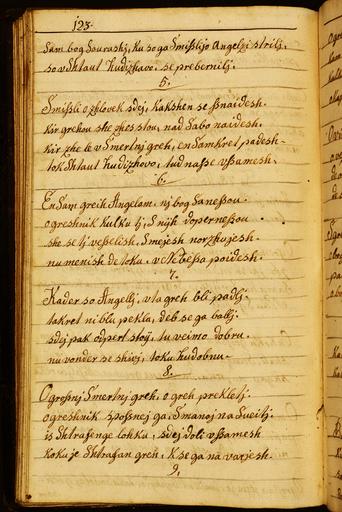 123.
Sam bog Sourashj, ku so ga Smishlijo Angelzi strilj,
so v Shtaut hudizhavo, se prebernilj.
5.
Smisli o zhlovek sdej, kakshen se snaidesh.
kir grehou she zhes stou, nad Sabo naidesh.
kir zhe le v Smertnj greh, en Samkret padesh
tok Shtaut hudizhovo, tud nase vsamesh,
6.
En Sam greih Angelam, nj bog Sanessou.
o greshnik kulku tj, S nijh dopernessou.
she se tj veselish, Smejesh norzhujesh.
nu menish de toku, v Nebessa poidesh.
7.
Kader so Angellj, v ta greh bli padlj.
takret ni blu pekla, deb se ga ballj.
sdej pak odpert stoij, tu veimo dobru.
nu vonder se shivj, toku hudobnu.
8.
O grosnj Smertnj greh, o greh prekletj.
o greshnik sposnej ga, Smanoj na Sveitj.
is Shtrafenge lohku, sdej doli vsamesh
koku je Shtrafan greh, k se ga na varjesh.
9.